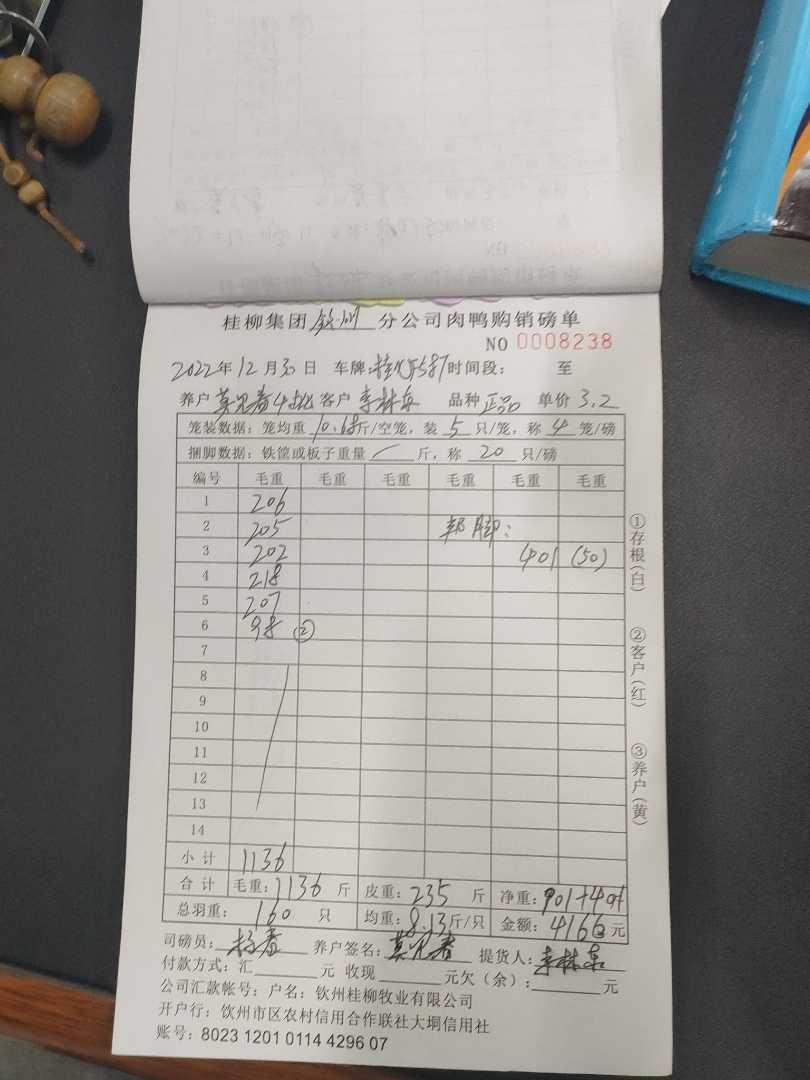 桂柳集团 钦州 分公司肉鸭购销磅单
NO 0008238
2022年12月30日 车牌: 时间段: 至
养户 莫兄春4批 客户 李林东 品种 正品 单价 3.2
笼装数据: 笼均重 10.68斤/空笼, 装 5 只/笼, 称 4 笼/磅
捆脚数据: 铁筐或板子重量 斤, 称 20 只/磅
编号 毛重 毛重 毛重 毛重 毛重 毛重
1 206
2 205 邦脚:
3 202 401 (50)
4 218
5 207
6 98 ②
7
8
9
10
11
12
13
14
小计 1136
合计 毛重: 1136 斤 皮重: 235 斤 净重: 901+401
总羽重: 160 只 均重: 8.13斤/只 金额: 4166元
司磅员: 养户签名: 莫兄春 提货人: 李林东
付款方式: 汇 元 收现 元欠(余): 元
公司汇款帐号: 户名: 钦州桂柳牧业有限公司
开户行: 钦州市区农村信用合作联社大垌信用社
账号: 8023 1201 0114 4296 07
①存根(白)
②客户(红)
③养户(黄)